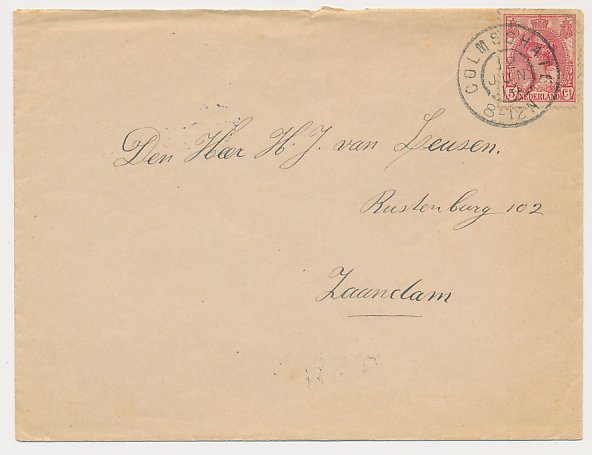 COLMSCHATE
12
JUN
8-12N
5 NEDERLAND Ct
Den Heer H. J. van Leusen.
Rustenburg 102
Zaandam